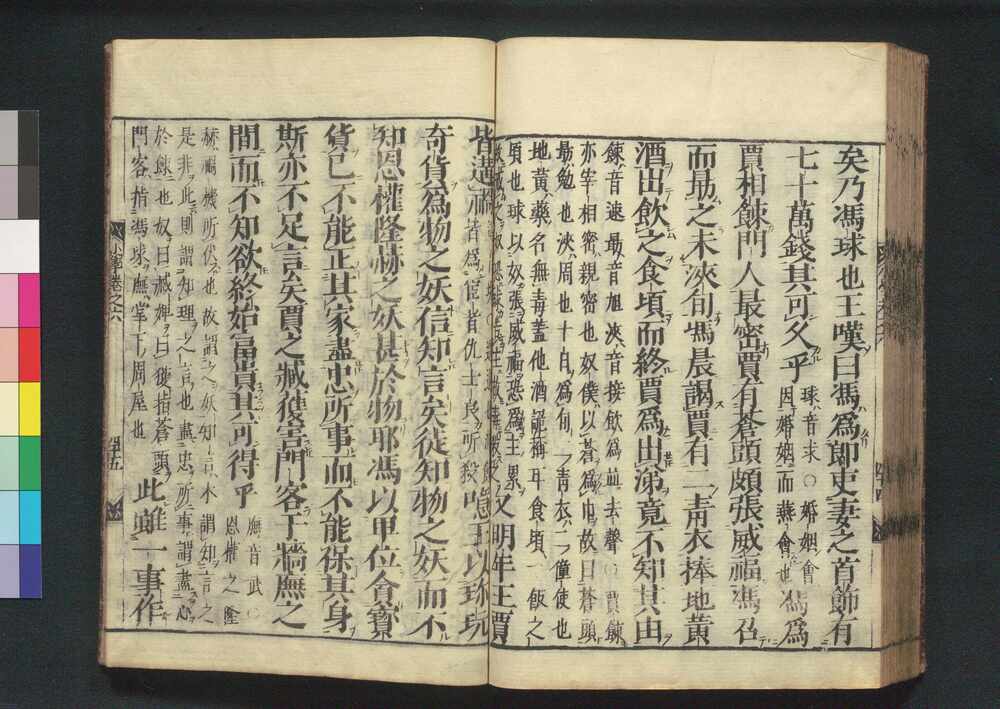 矣乃馮球也王嘆曰馮爲郎吏妻之首飾有
七十萬錢其可久乎 球音求○婚姻會
因婚姻而燕會也 馮爲
賈相餗門人最密賈有蒼頭頗張威福馮召
而勗之未浹旬馮晨謁賈有二靑衣捧地黃
酒出飮之食頃而終賈爲出涕竟不知其由
餗音速勗音旭浹音接飮爲並去聲○賈餗
亦宰相密親密也奴僕以蒼爲巾故曰蒼頭
勗勉也浹周也十日爲旬靑衣二僮使也
地黃藥名無毒蓋他酒詭稱耳食頃一飯之
頃也球以奴張威福恐爲主累
又明年王賈
皆遘禍 皆爲宦者仇士良所殺 噫王以珍玩
奇貨爲物之妖信知言矣徒知物之妖而不
知恩權隆赫之妖甚於物耶馮以卑位貪寶
貨已不能正其家盡忠所事而不能保其身
斯亦不足言矣賈之臧獲害門客于牆廡之
間而不知欲終始富貴其可得乎 廡音武○
恩權之隆
赫禍機所伏也故謂之妖知言本謂知言之
是非此則謂知理之言也盡忠所事謂盡心
於餗也奴曰臧婢曰獲指蒼頭
門客指馮球廡堂下周屋也 此雖一事作
小學卷之六